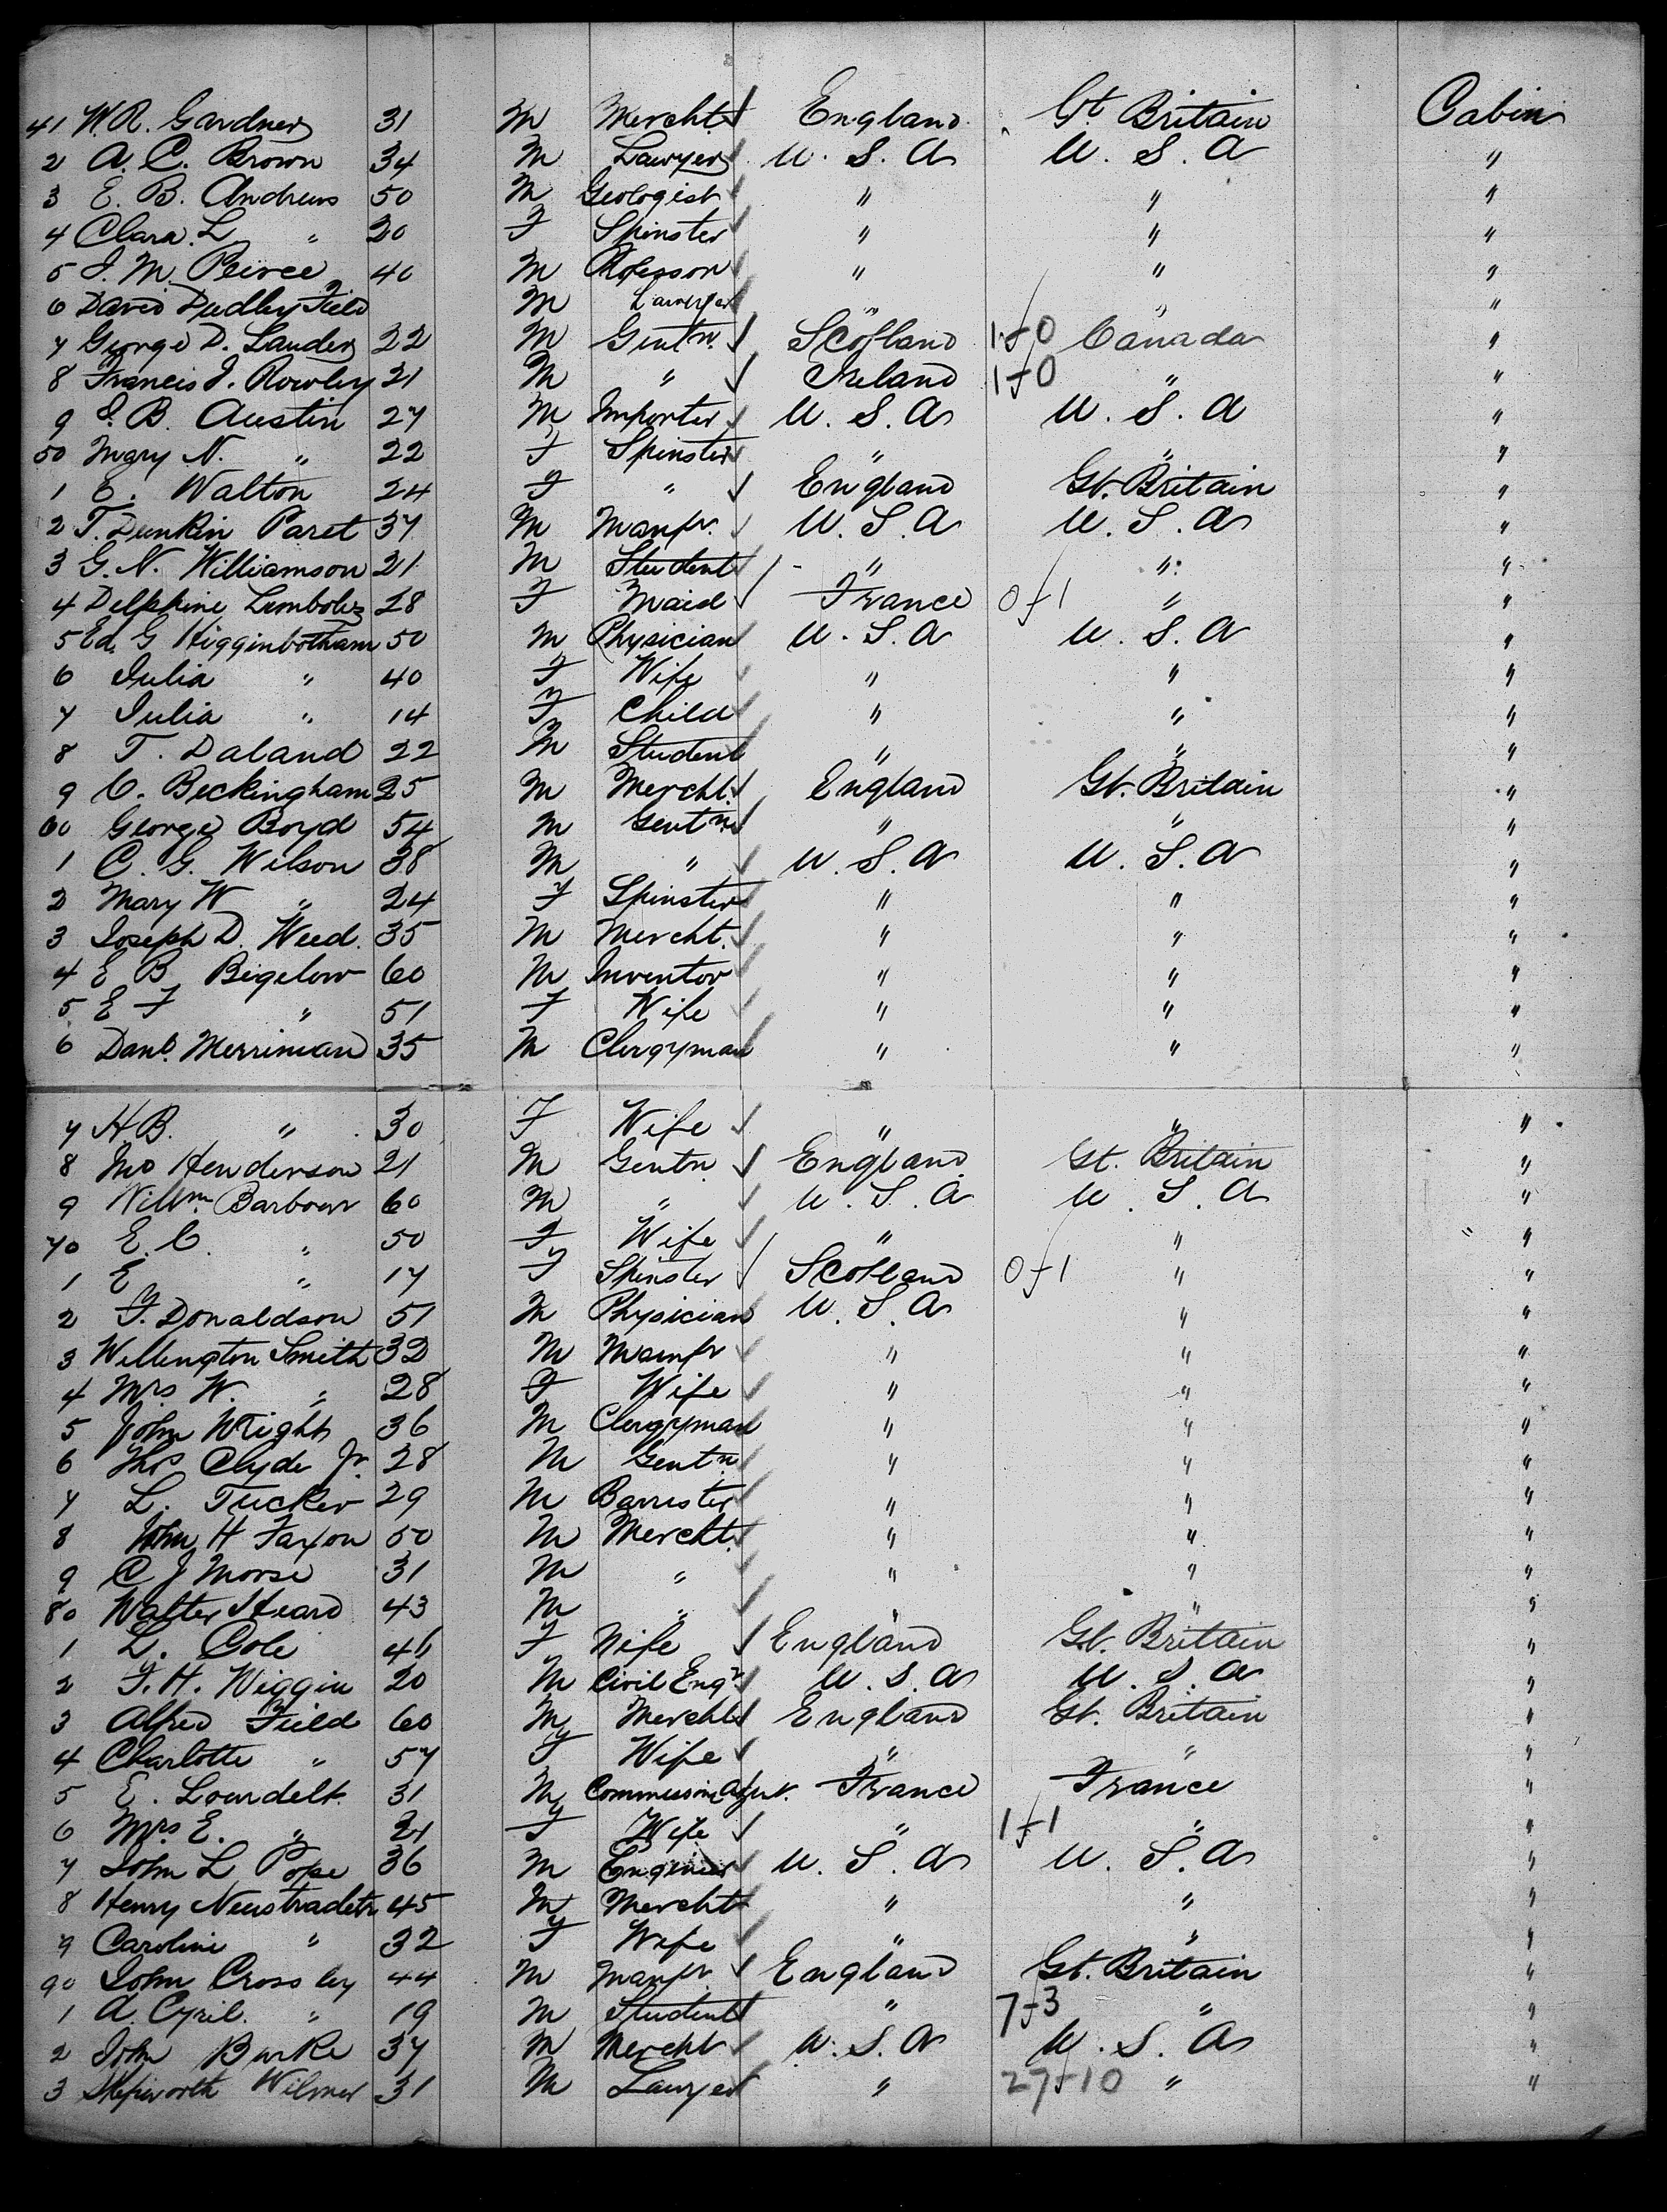 41 W. R. Gardner 31 M Mercht. England Gt. Britain Cabin
2 A. C. Brown 34 M Lawyer U. S. A U. S. A "
3 E. B. Andrews 50 M Geologist " " "
4 Clara L " 20 F Spinster " " "
5 J. M. Peirce 40 M Professor " " "
6 David Dudley Field M Lawyer " " "
7 George D. Lauder 22 M Gentn. Scotland 1-0 Canada "
8 Francis J. Rowley 21 M " Ireland 1-0 " "
9 J. B. Austin 27 M Importer U. S. A U. S. A "
50 Mary N. " 22 F Spinster " " "
1 E. Walton 24 F " England Gt. Britain "
2 T. Dunkin Paret 37 M Manfr. U. S. A U. S. A "
3 G. N. Williamson 21 M Student " " "
4 Delphine 28 F Maid France 0-1 " "
5 Ed. G Higginbotham 50 M Physician U. S. A U. S. A "
6 Julia " 40 F Wife " " "
7 Julia " 14 F Child " " "
8 T. Daland 22 M Student " " "
9 C. Beckingham 25 M Mercht. England Gt. Britain "
60 George Boyd 54 M Gentn " " "
1 C. G. Wilson 38 M " U. S. A U. S. A "
2 Mary W " 24 F Spinster " " "
3 Joseph D. Weed. 35 M Mercht. " " "
4 E B Bigelow 60 M Inventor " " "
5 E F " 51 F Wife " " "
6 Danl. Merriman 35 M Clergyman " " "
7 H. B. " 30 F Wife " " "
8 Jno Henderson 21 M Gentn England Gt. Britain "
9 Willm. Barbour 60 M " U. S. A U. S. A "
70 E. C. " 50 F Wife " " "
1 E " 17 F Spinster Scotland 0-1 " "
2 F. Donaldson 51 M Physician U. S. A " "
3 Wellington Smith 32 M Manfr " " "
4 Mrs W. " 28 F Wife " " "
5 John Wright 36 M Clergyman " " "
6 Thos Clyde Jr. 28 M Gentn " " "
7 L. Tucker 29 M Barrister " " "
8 John H Faxon 50 M Mercht. " " "
9 C J Morse 31 M " " " "
80 Walter Heard 43 M " " " "
1 L. Cole 46 F Wife England Gt. Britain "
2 F. H. Wiggin 20 M Civil Engr U. S. A U. S. A "
3 Alfred Field 60 M Mercht England Gt. Britain "
4 Charlotte " 57 F Wife " " "
5 E. Lourdelt. 31 M Commission Agent. France France "
6 Mrs. E. " 21 F Wife " 1-1 " "
7 John L Pope 36 M Engineer U. S. A U. S. A "
8 Henry 45 M Mercht " " "
9 Caroline " 32 F Wife " " "
90 John Crossley 44 M Manfr. England Gt. Britain "
1 A. Cyril. " 19 M Student " 7-3 " "
2 John Burke 37 M Mercht U. S. A U. S. A "
3 Skipworth Wilmer 31 M Lawyer " 27-10 " "